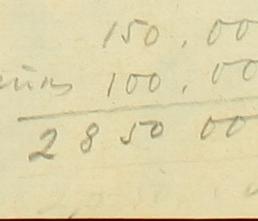 150.00
100.00
2850 00